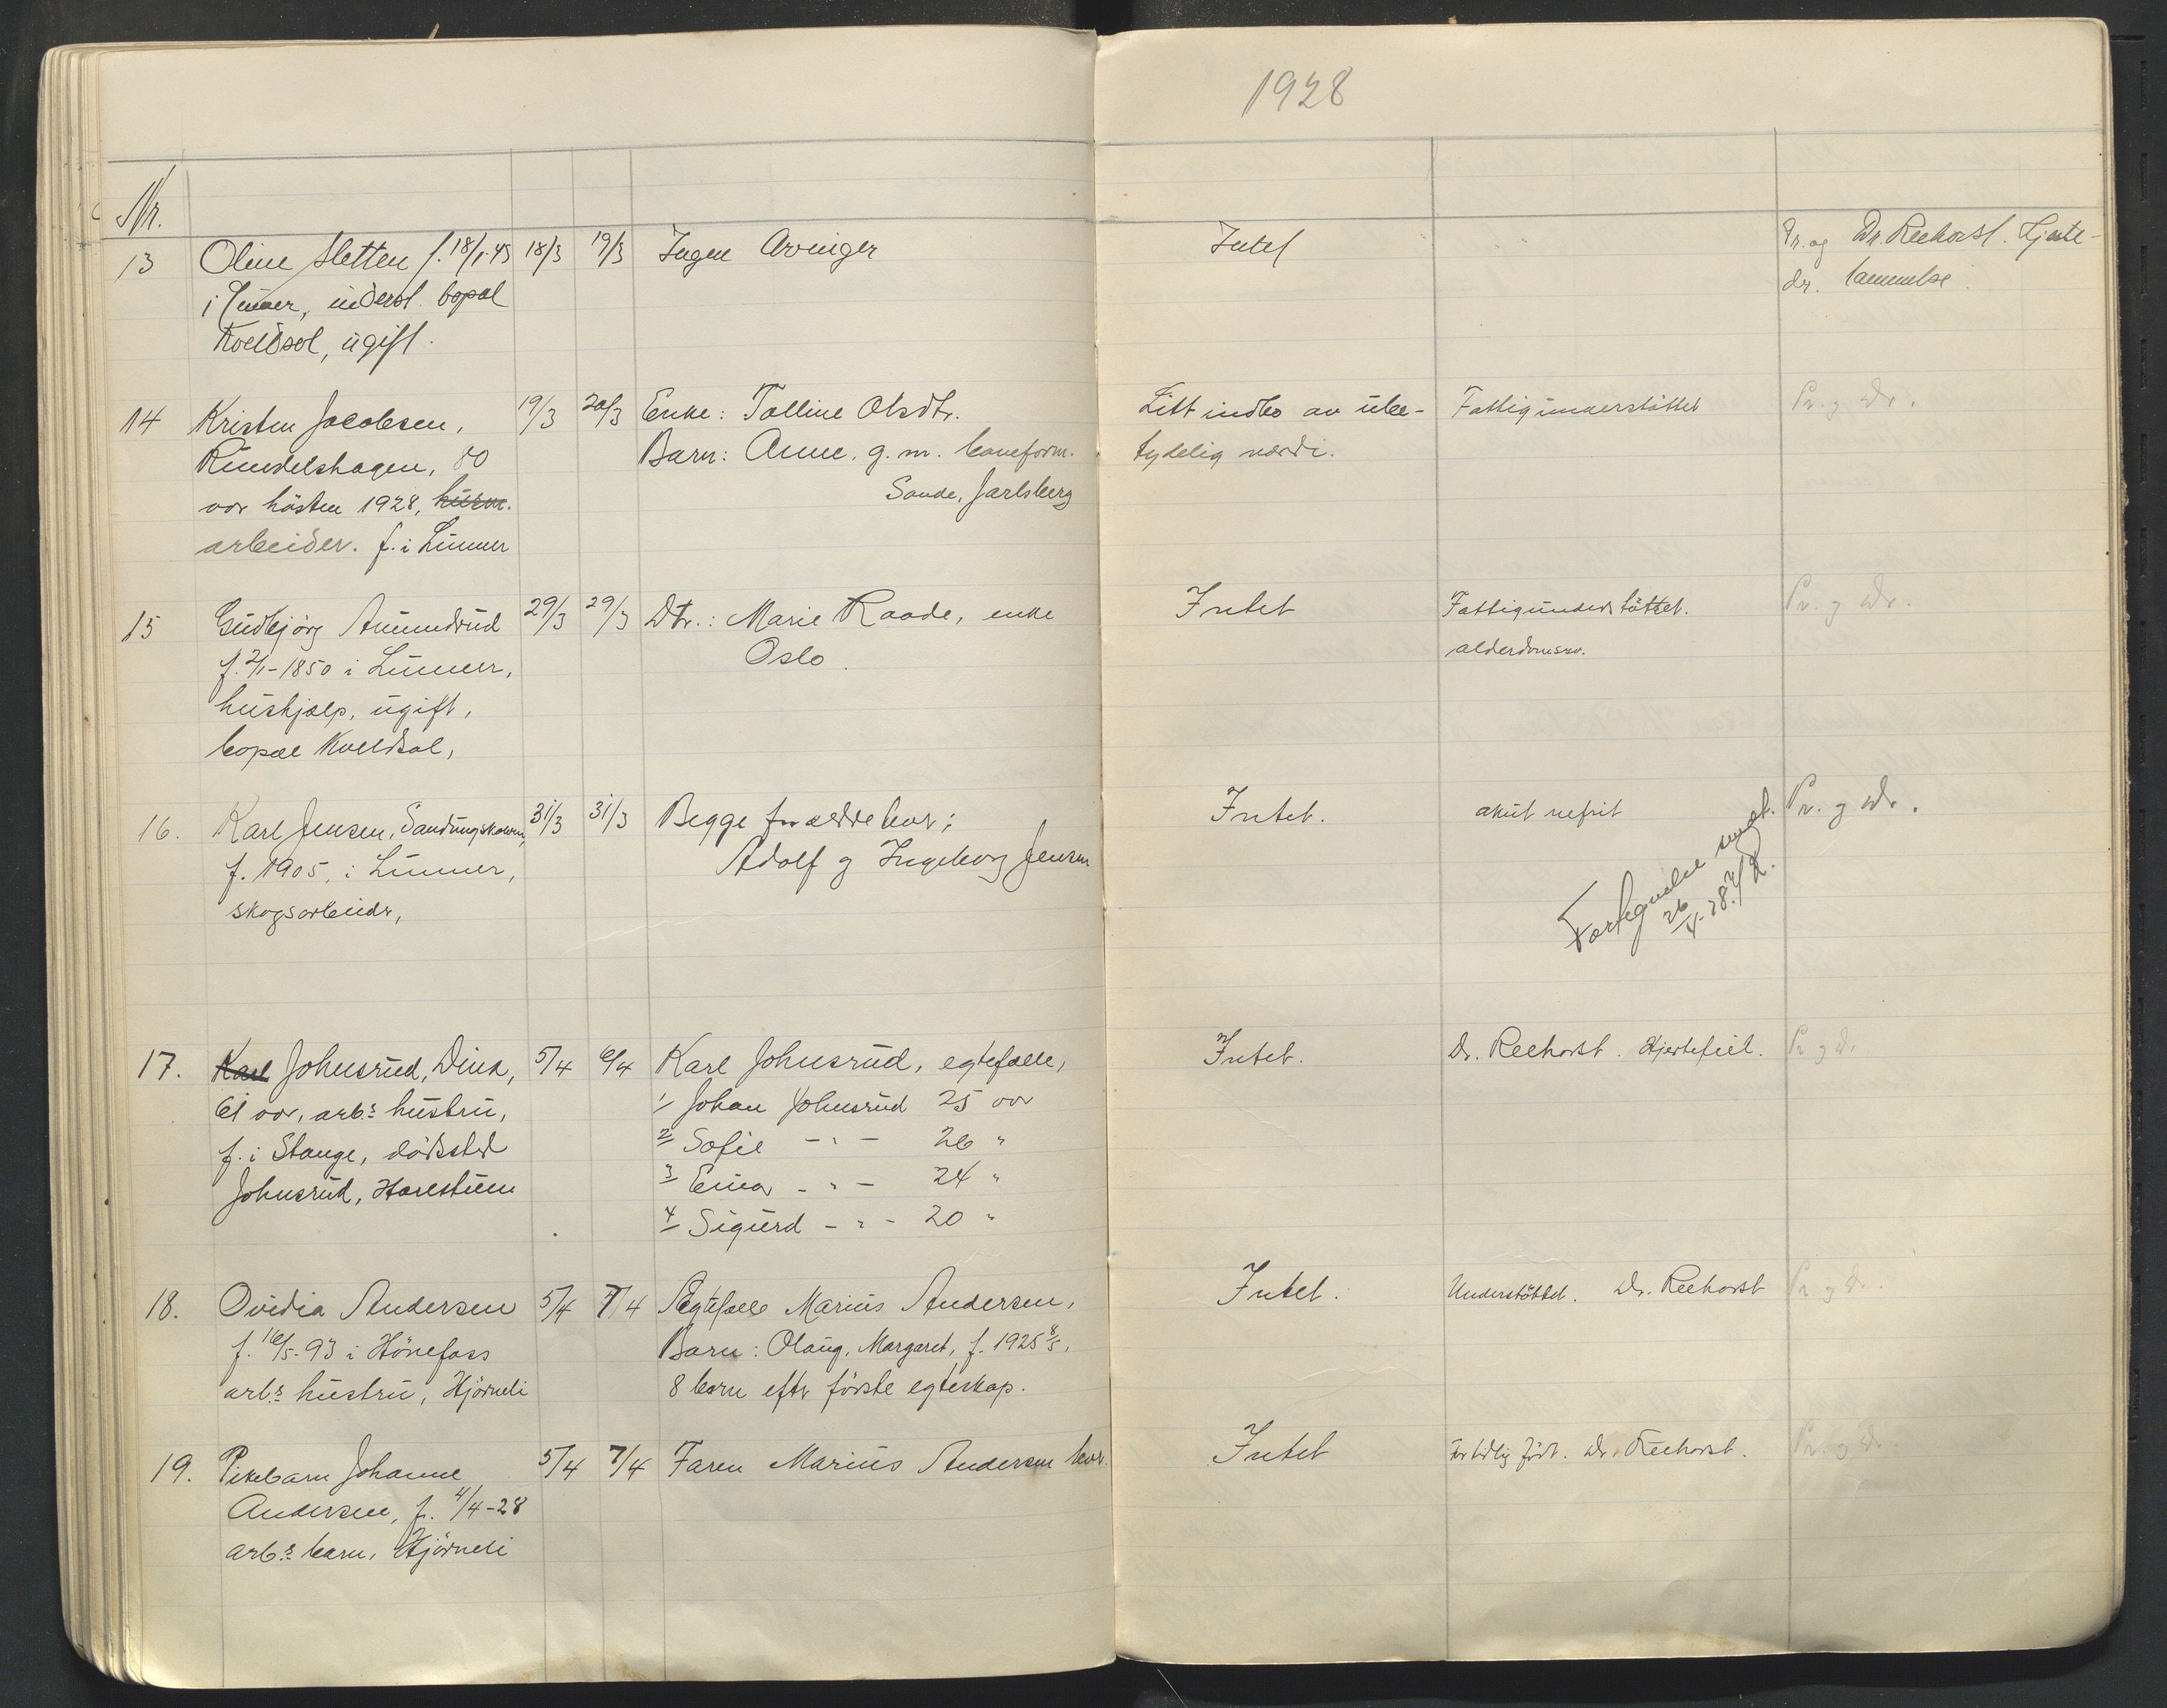 1928
Nr.
13 Oline Sletten f. 18/1-43 18/3 19/3 Ingen Arvinger Intet Pr. og Dr. Reehorst. Hjerte-
i Lunner, underst. bopæl dr. lammelse.
Kveldsol, ugift.
14 Kristen Jacobsen, 19/3 20/3 Enke: Olsdtr. Litt indbo av ube- Fattigunderstöttet Pr. og Dr.
80 Barn: Anne, g.m. tydelig værdi.
aar hösten 1928, Sande, Jarlsberg
arbeider. f. i Lunner
15 Gudbjørg Amundrud 29/3 29/3 Dtr.: Marie Raade, enke Intet Fattigunderstöttet. Pr. og Dr.
f. 2/1-1850 i Lunner, Oslo. alderdomssv.
hushjælp, ugift,
bopæl Kveldsol,
16. Karl Jensen, 31/3 31/3 Begge forældre lever; Intet. akut nefrit Pr. og Dr.
f. 1905, i Lunner, Adolf og Ingeborg Jensen
skogsarbeider,
Fortegnelse sendt.
26/4-28.
17. Karl Johnsrud, Dina, 5/4 6/4 Karl Johnsrud, egtefælle, Intet. Dr. Reehorst. Hjertefeil. Pr. og Dr.
61 aar, arb.s hustru, 1/ Johan Johnsrud 25 aar
f. i Stange, dödssted 2/ Sofie - " - 26 "
Johnsrud, Harestuen 3/ Einar - " - 24 "
4/ Sigurd - " - 20 "
18. Ovidia Andersen 5/4 7/4 Ægtefælle Marius Andersen, Intet. Understöttet. Dr. Reehorst Pr. og Dr.
f. 16/5-93 i Hönefoss Barn: Olaug, Margaret, f. 1925 8/5.
arb.s hustru, Hjörneli 8 barn efter förste egteskap.
19. Pikebarn Johanne 5/4 7/4 Faren Marius Andersen lever. Intet For tidlig född. Dr. Reehorst. Pr. og Dr.
Andersen, f. 4/4-28
arb.s barn, Hjörneli